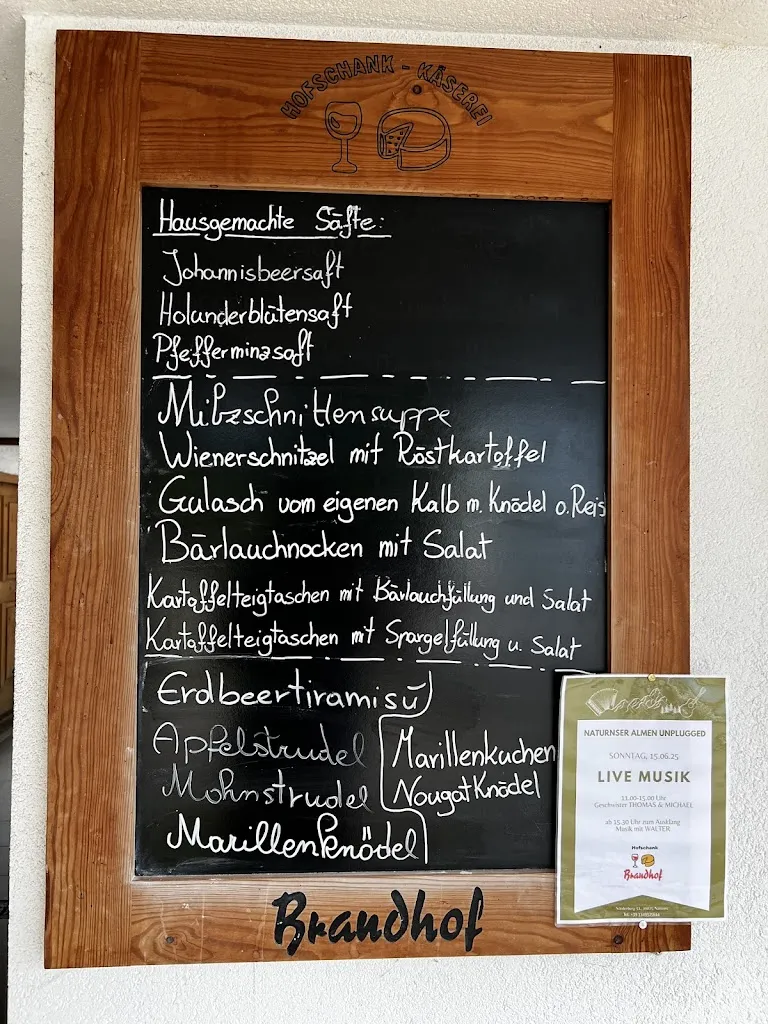 HOFSCHANK - KÄSEREI
Hausgemachte Säfte:
Johannisbeersaft
Holunderblütensaft
Pfefferminzsaft
Milzschnittensuppe
Wienerschnitzel mit Röstkartoffel
Gulasch vom eigenen Kalb m. Knödel o. Reis
Bärlauchnocken mit Salat
Kartoffelteigtaschen mit Bärlauchfüllung und Salat
Kartoffelteigtaschen mit Spargelfüllung u. Salat
Erdbeertiramisu
Apfelstrudel
Mohnstrudel
Marillenknödel
Marillenkuchen
Nougat Knödel
Brandhof
NATURNSER ALMEN UNPLUGGED
SONNTAG, 15.06.25
LIVE MUSIK
13.00-15.00 Uhr
Geschwister THOMAS & MICHAEL
ab 15.30 Uhr zum Ausklang
Musik mit WALTER
Hofschank
Brandhof